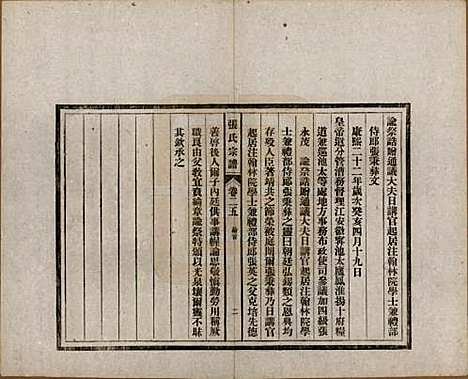 諭祭誥贈通議大夫日講官起居注翰林院學士兼禮部
侍郎張秉彝文
康熙二十二年歲次癸亥四月十九日
皇帝遣分管漕務督理江安徽寧池太廬鳳淮揚十府糧
道兼巡池太等處地方事務布政使司參議加四級張
永茂 諭祭誥贈通議大夫日講官起居注翰林院學
士兼禮部侍郎張秉彝之靈曰朝廷弘錫類之恩與均
存歿人臣著靖共之節榮被庭闈爾張秉彝乃日講官
起居注翰林院學士兼禮部侍郎張英之父克培先德
張氏宗譜 卷二五 二
善啓後人爾子內廷供事講幄論思敬慎勤勞用稱厥
職良由父教宜貴綸章諭祭特頒以光泉壤爾靈不昧
其欽承之